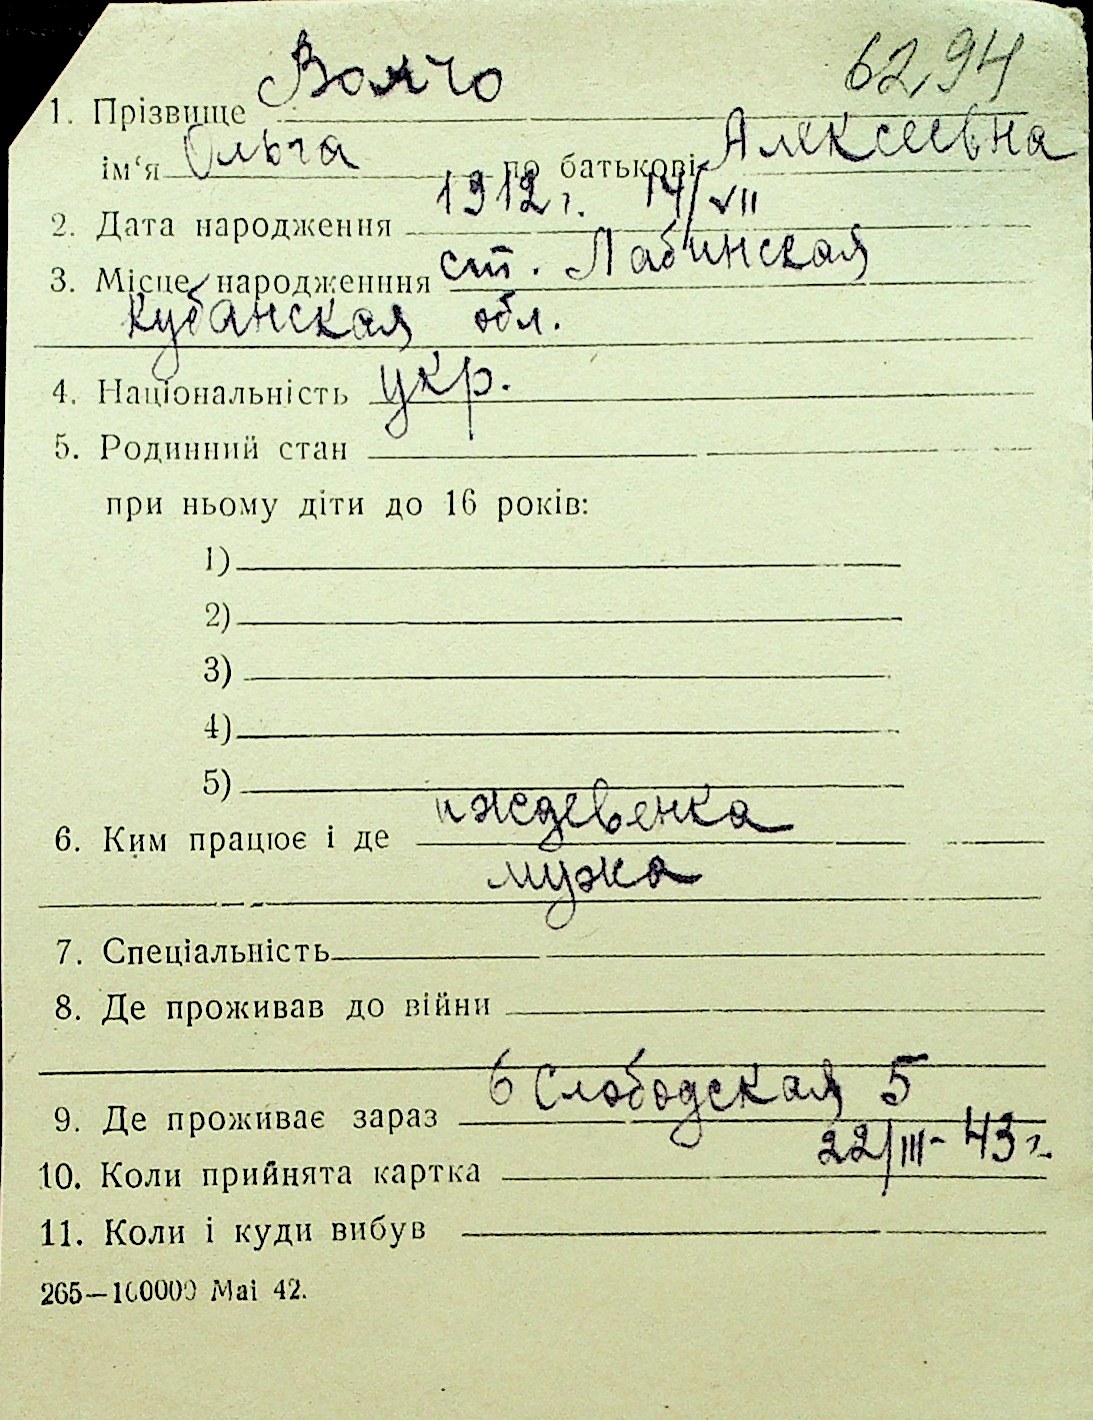 6294
1. Прізвище Вончо
ім‘я Ольга по батькові Алексеевна
2. Дата народження 1912 г. 14/VII
3. Місце народженння ст. Лабинская
Кубанская обл.
4. Національність укр.
5. Родинний стан
при ньому діти до 16 років:
1)
2)
3)
4)
5)
6. Ким працює і де иждевенка
мужа
7. Спеціальність
8. Де проживав до війни
9. Де проживає зараз 6 Слободская 5
10. Коли прийнята картка 22/III-43 г.
11. Коли і куди вибув
265—100000 Mai 42.